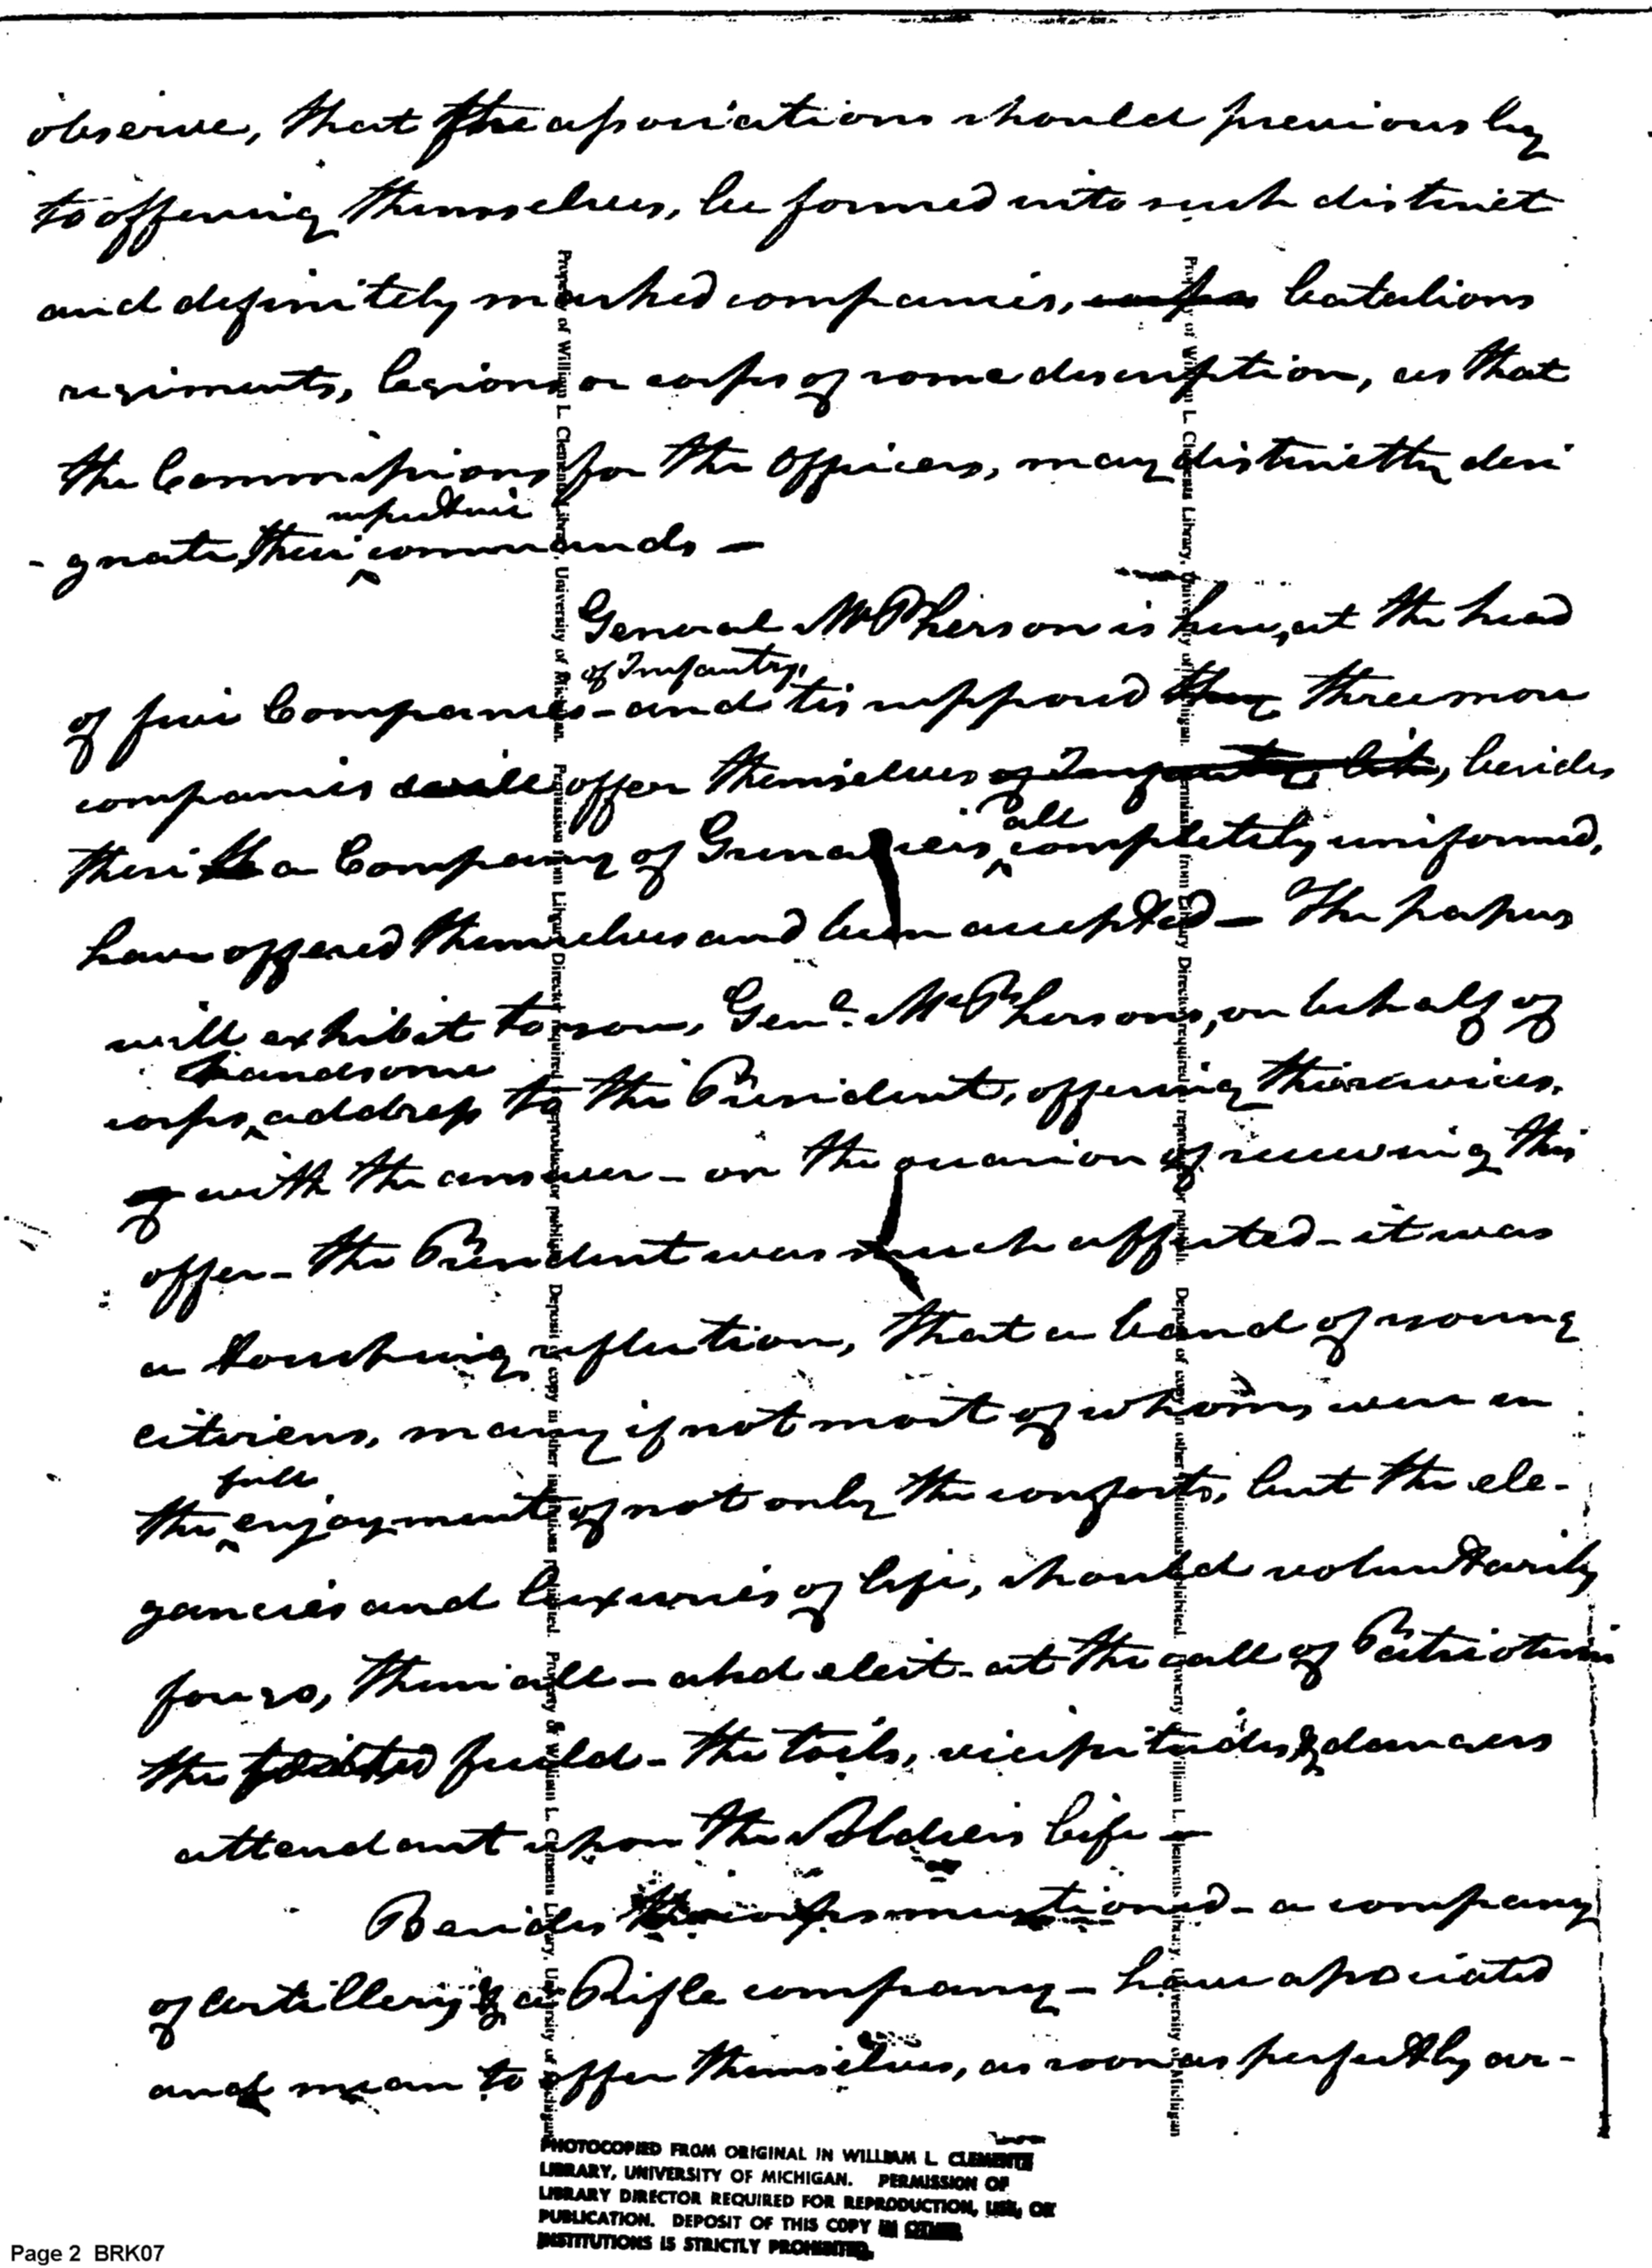 observe, that the associations should previously
to offering themselves, be formed into such distinct
and definitely marked companies, corps batalions
regiments, legions or corps of some description, as that
the Commissions for the Officers, may distinctly desi
respective
- gnate, their commands —
General McPherson is here, at the head
of Infantry,
of five Companies - and tis supposed they three more
companies will offer themselves of Infantry, besides
these a Company of Grenadiers, all completely uniformed,
have offered themselves and been accepted — The papers
will exhibit to you, Genl. McPhersons, on behalf of
handsome
corps, address to the President, offering their services,
of with the answer - on the occasion of receiving this
offer - the President was much affected - it was
a touching reflection, that a band of young
citizens, many if not most of whom, were in
full
the enjoyment of not only the comforts, but the ele-
gancies and luxuries of life, should voluntarily
forgo, them all - and elect - at the call of Patriotism
the tented field - the toils, vicissitudes & dangers
attendant upon the Soldiers life —
Besides the corps mentioned - a company
of Artillery & a Rifle company - have associated
and mean to offer themselves, as soon as perfectly ar-
Property of William L. Clements Library, University of Michigan. Permission from Library Director required to reproduce or publish. Deposit of copy in other institutions prohibited. Property of William L. Clements Library, University of Michigan
Property of William L. Clements Library, University of Michigan. Permission from Library Director required to reproduce or publish. Deposit of copy in other institutions prohibited. Property of William L. Clements Library, University of Michigan
PHOTOCOPIED FROM ORIGINAL IN WILLIAM L. CLEMENTS
LIBRARY, UNIVERSITY OF MICHIGAN. PERMISSION OF
LIBRARY DIRECTOR REQUIRED FOR REPRODUCTION, USE, OR
PUBLICATION. DEPOSIT OF THIS COPY IN OTHER
INSTITUTIONS IS STRICTLY PROHIBITED.
Page 2 BRK07